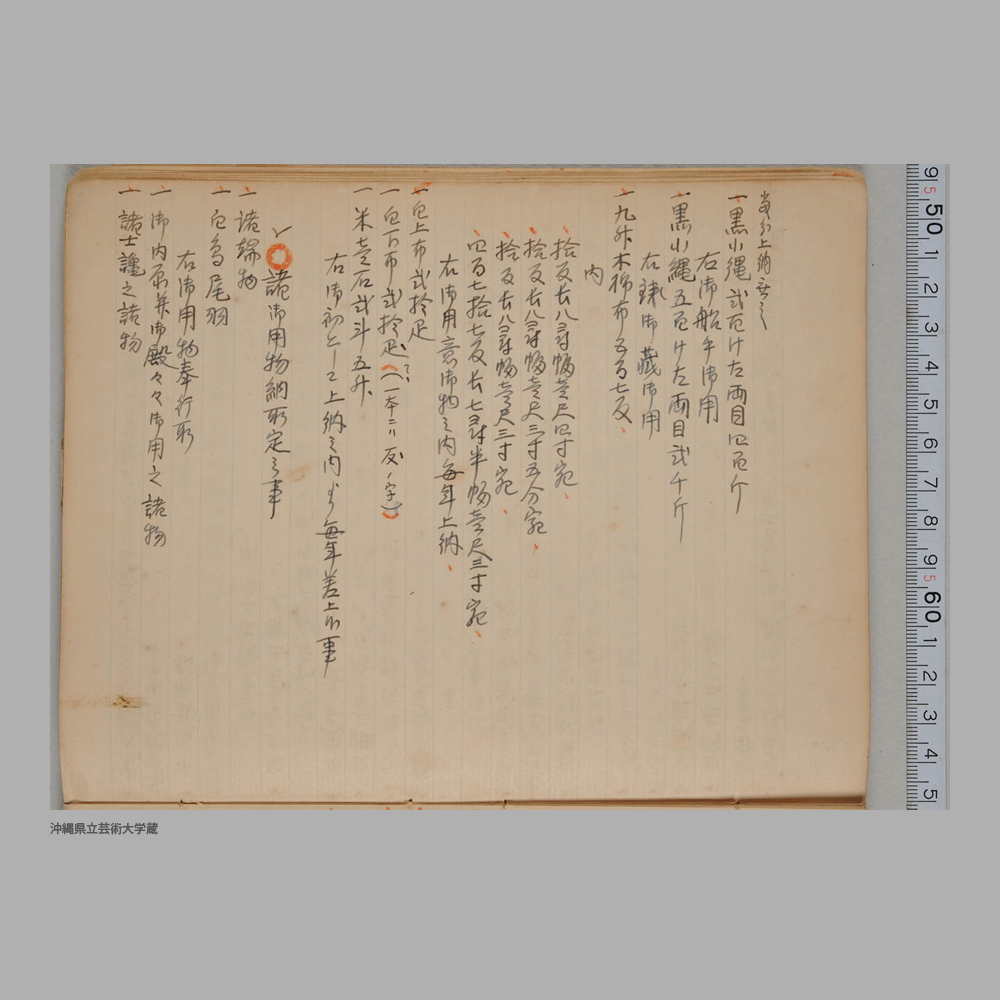 当分上納無之
一黒小縄弐百斤左両目四百斤
右御船手御用
一黒小縄五百斤左両目弐千斤
右御蔵御用
一九升木棉布五百七反
内
拾反長八尋幅壹尺四寸宛
拾反長八尋幅壹尺三寸五分宛
拾反長八尋幅壹尺三寸宛
四百七拾七反長七尋半幅壹尺三寸宛
右御用意御物之内毎年上納
一白上布弐拾疋
一白下布弐拾疋(一本ニハ反ノ字)
一米壹石弐斗五升
右御初として上納之内より毎年差上候事
諸御用物納取定之事
一諸端物
一白鳥尾羽
右御用物奉行取
一御内原并御殿々々御用之諸物
一諸士謢之諸物
沖縄県立芸術大学蔵
9 50 1 2 3 4 5 6 7 8 9 60 1 2 3 4 5